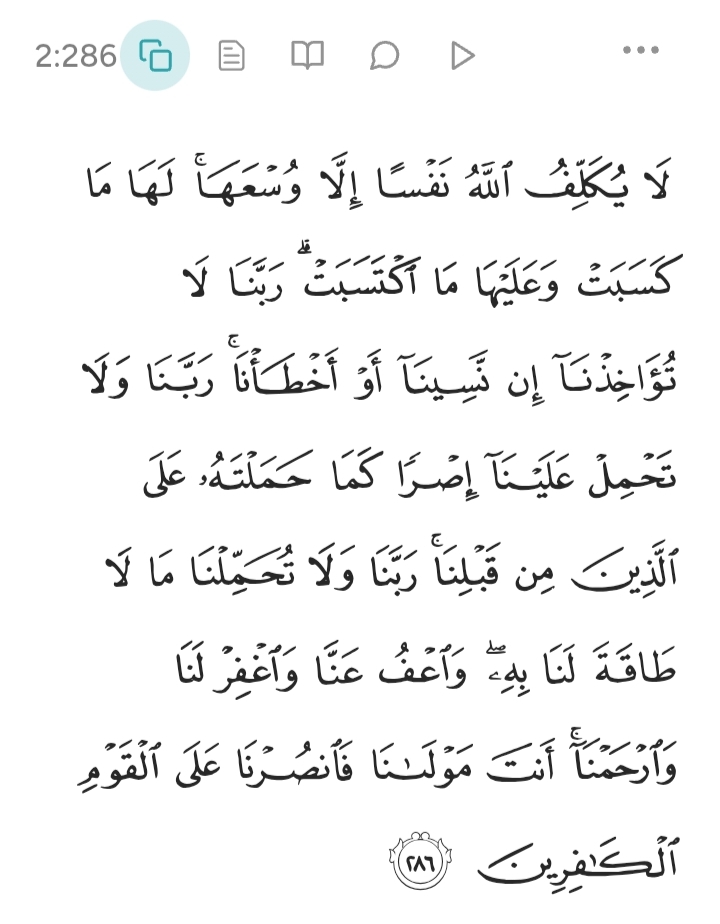 2:286
لَا يُكَلِّفُ ٱللَّهُ نَفْسًا إِلَّا وُسْعَهَاۚ لَهَا مَا
كَسَبَتْ وَعَلَيْهَا مَا ٱكْتَسَبَتْۗ رَبَّنَا لَا
تُؤَاخِذْنَآ إِن نَّسِينَآ أَوْ أَخْطَأْنَاۚ رَبَّنَا وَلَا
تَحْمِلْ عَلَيْنَآ إِصْرًا كَمَا حَمَلْتَهُۥ عَلَى
ٱلَّذِينَ مِن قَبْلِنَاۚ رَبَّنَا وَلَا تُحَمِّلْنَا مَا لَا
طَاقَةَ لَنَا بِهِۦۖ وَٱعْفُ عَنَّا وَٱغْفِرْ لَنَا
وَٱرْحَمْنَآۚ أَنتَ مَوْلَىٰنَا فَٱنصُرْنَا عَلَى ٱلْقَوْمِ
ٱلْكَٰفِرِينَ ٢٨٦